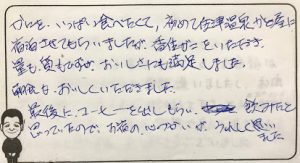 カニを、いっぱい食べたくて、初めて佳津温泉かど屋に
宿泊させてもらいましたが、番佳がこをいただき、
量も、質もですが、おいしさにも満足しました。
朝食も、おいしくいただきました。
最後に、コーヒーを出しもらい、飲みたいと
思っていたので、お宿の心づかいが、うれしく思い
ました。